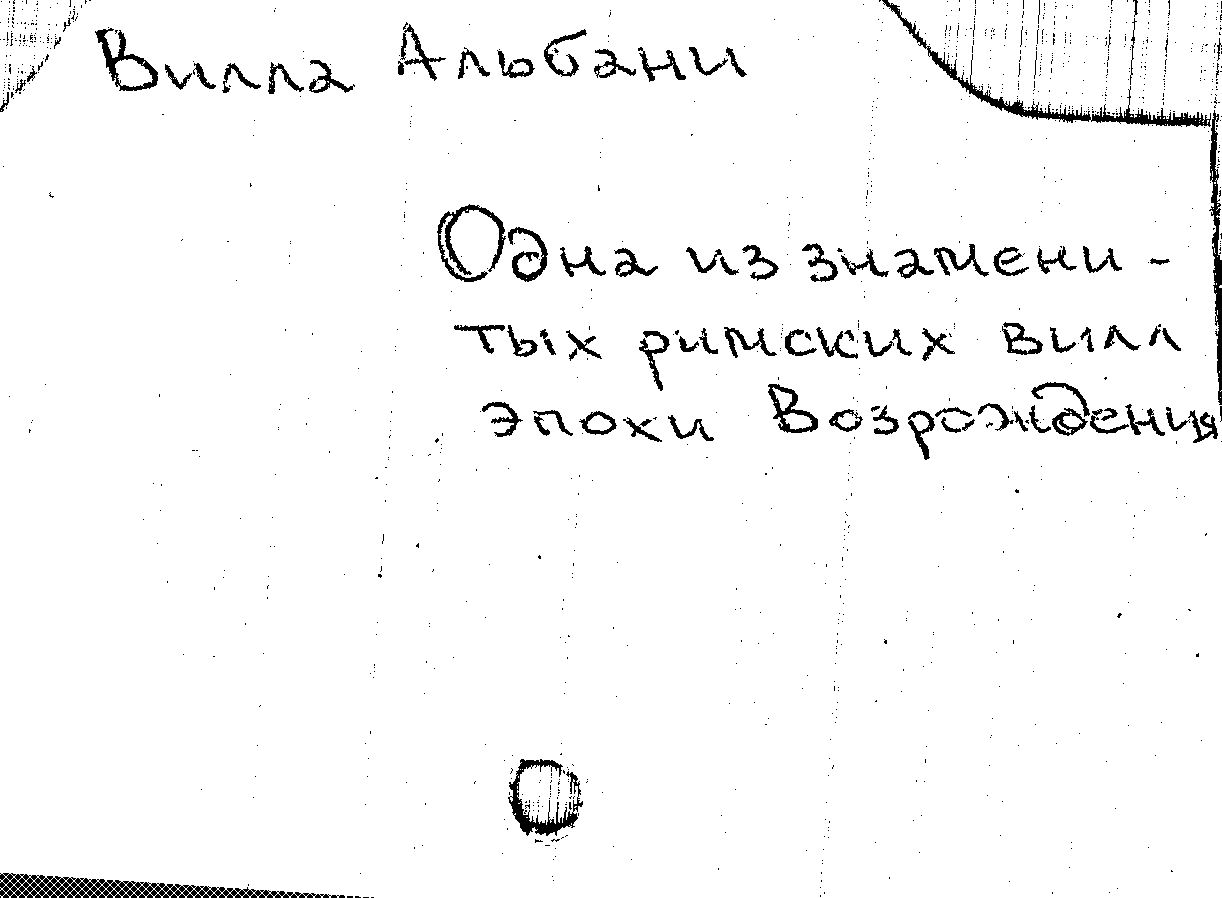 Вилла Альбани
Одна из знамени-
тых римских вилл
эпохи Возрождения